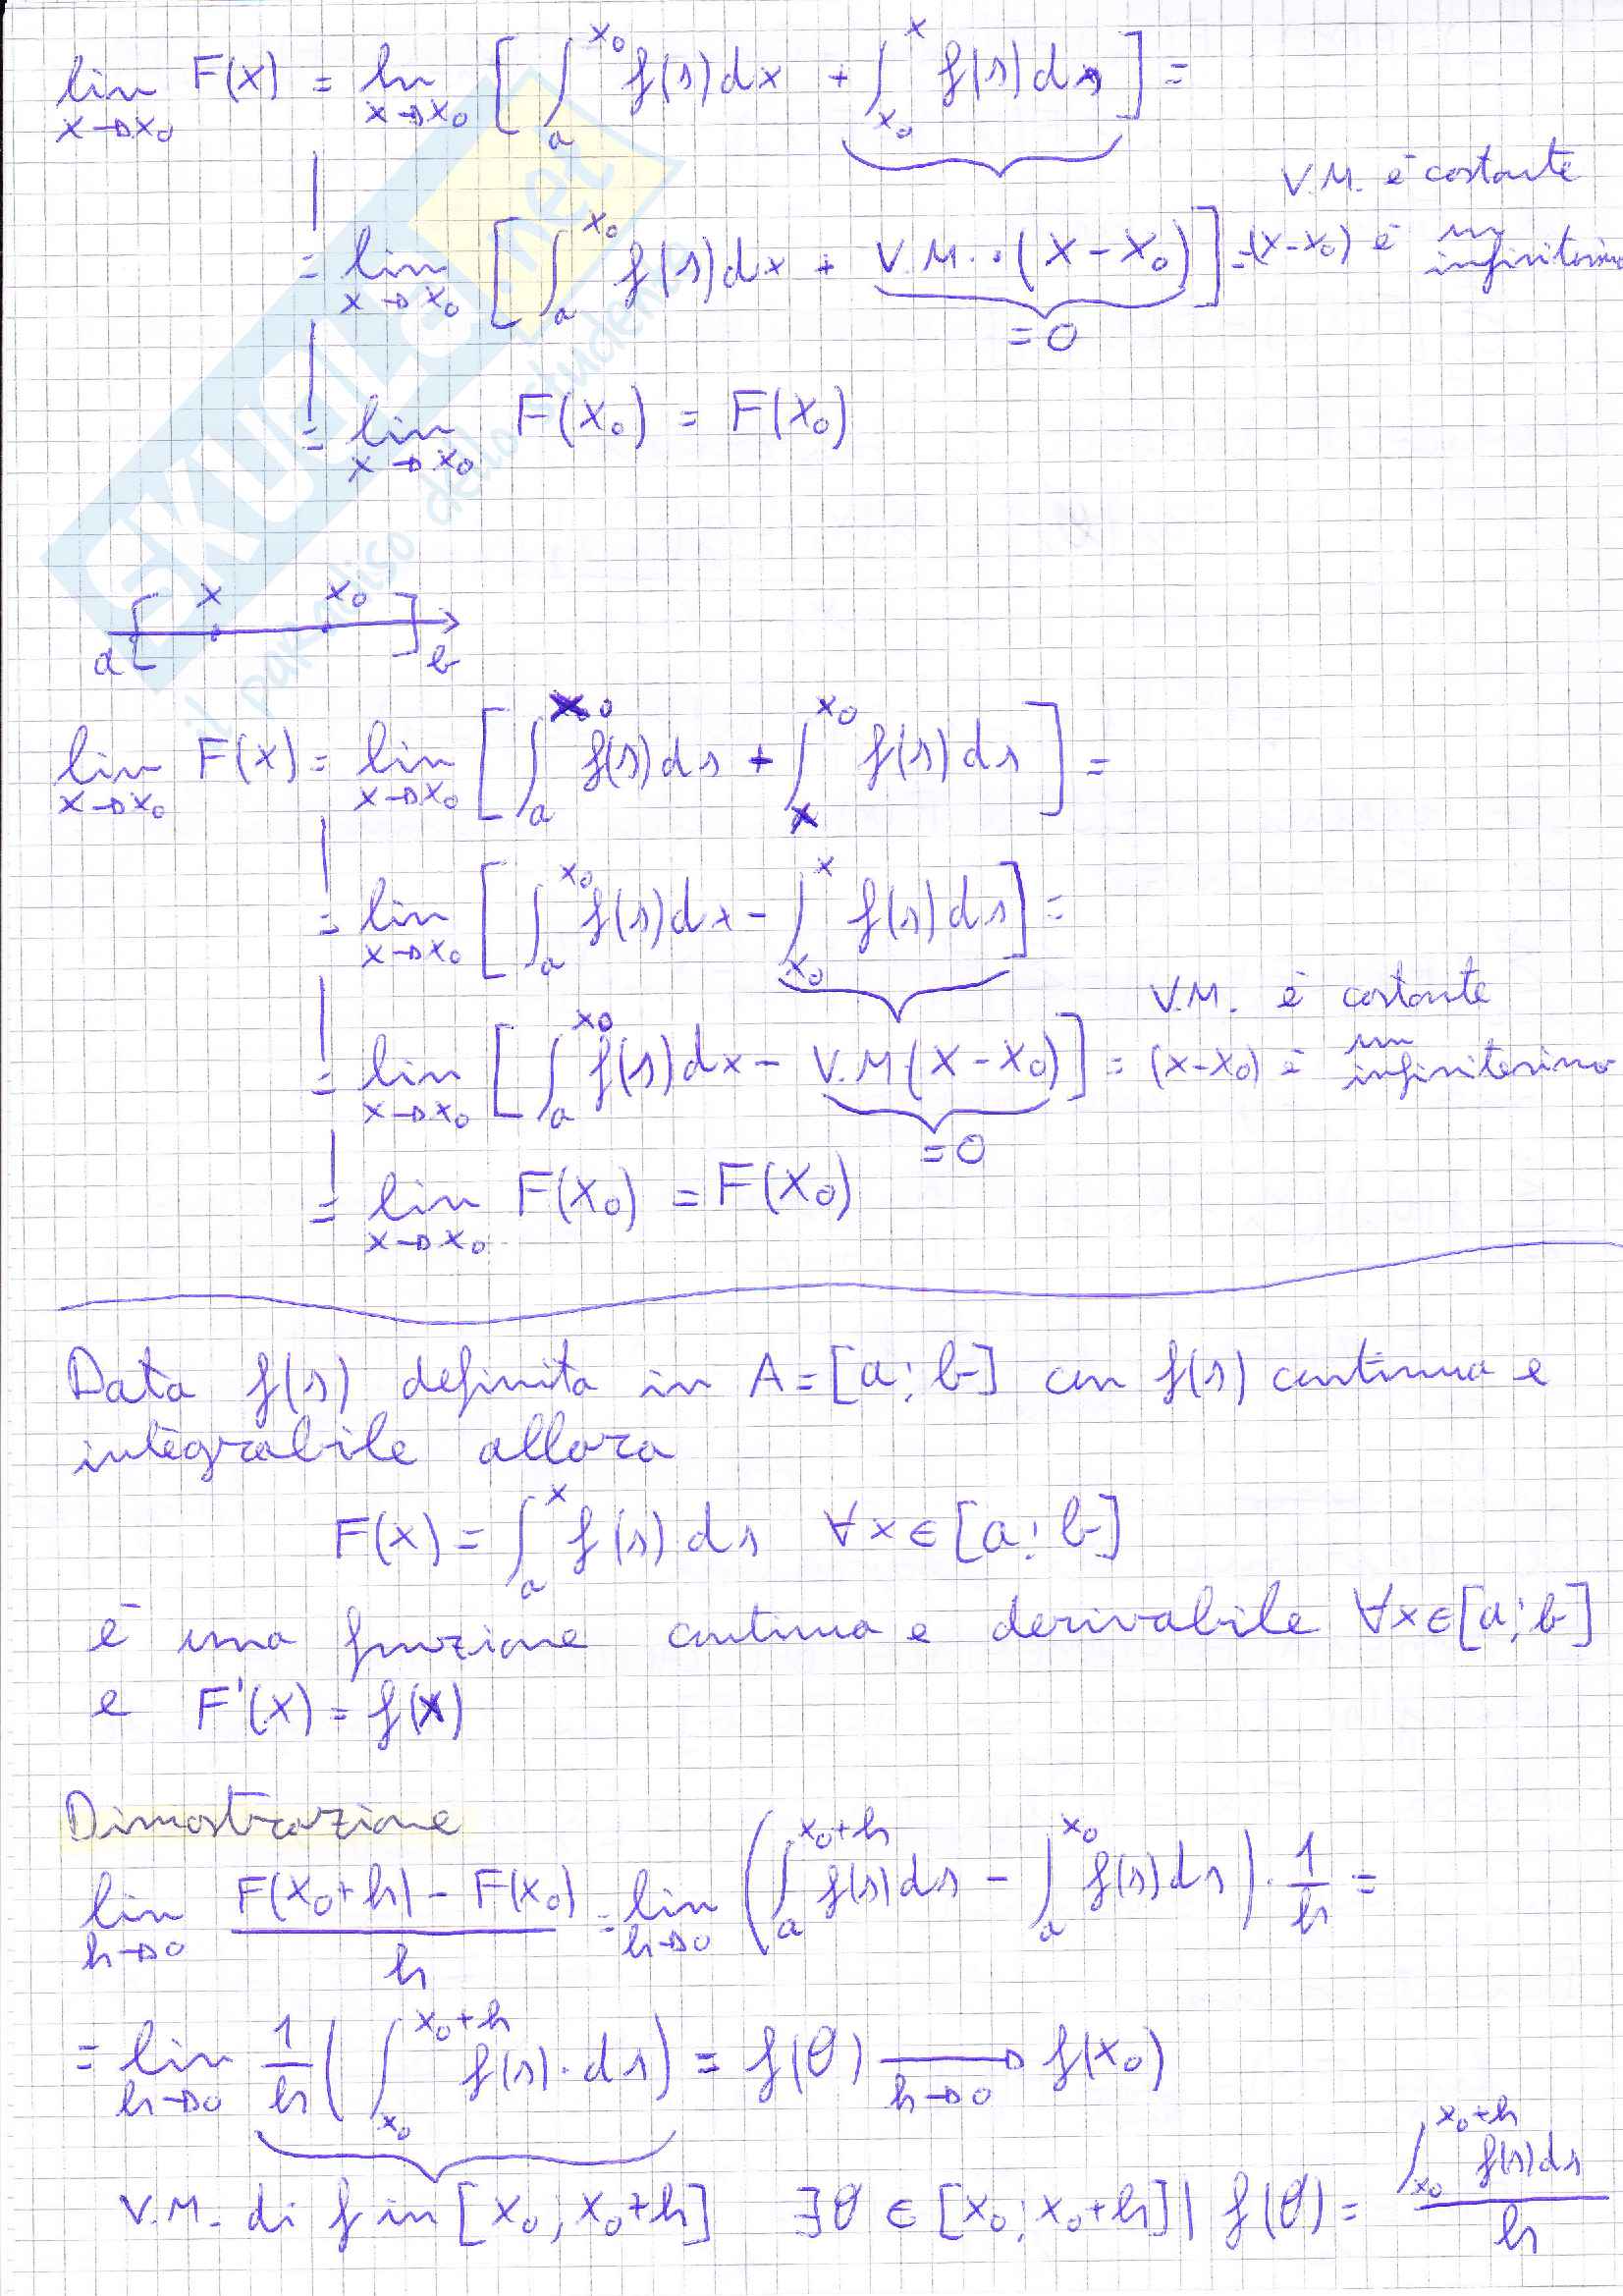 lim x→x₀ F(x) = lim x→x₀ [ ∫ₐ^x₀ f(s)dx + ∫x₀^x f(s)ds ] =
V.M. è costante
= lim x→x₀ [ ∫ₐ^x₀ f(s)dx + V.M. · (x-x₀) ] = (x-x₀) è un infinitesimo
= 0
= lim x→x₀ F(x₀) = F(x₀)
SKUOLA.net
il paradiso dello studente
x x₀
a [ ] b
lim x→x₀ F(x) = lim x→x₀ [ ∫ₐ^x₀ f(s)ds + ∫x^x₀ f(s)ds ] =
= lim x→x₀ [ ∫ₐ^x₀ f(s)dx - ∫x₀^x f(s)ds ] =
V.M. è costante
= lim x→x₀ [ ∫ₐ^x₀ f(s)dx - V.M.(x-x₀) ] = (x-x₀) è un infinitesimo
= 0
= lim x→x₀ F(x₀) = F(x₀)
Data f(s) definita in A = [a; b] con f(s) continua e
integrabile allora
F(x) = ∫ₐ^x f(s) ds ∀x ∈ [a; b]
è una funzione continua e derivabile ∀x∈[a; b]
e F'(x) = f(x)
Dimostrazione
lim h→0 (F(x₀+h) - F(x₀))/h = lim h→0 ( ∫ₐ^x₀+h f(s)ds - ∫ₐ^x₀ f(s)ds ) · 1/h =
= lim h→0 1/h ( ∫x₀^x₀+h f(s)·ds ) = f(θ) →h→0 f(x₀)
V.M. di f in [x₀; x₀+h] ∃θ ∈ [x₀; x₀+h] | f(θ) = ∫x₀^x₀+h f(s)ds / h